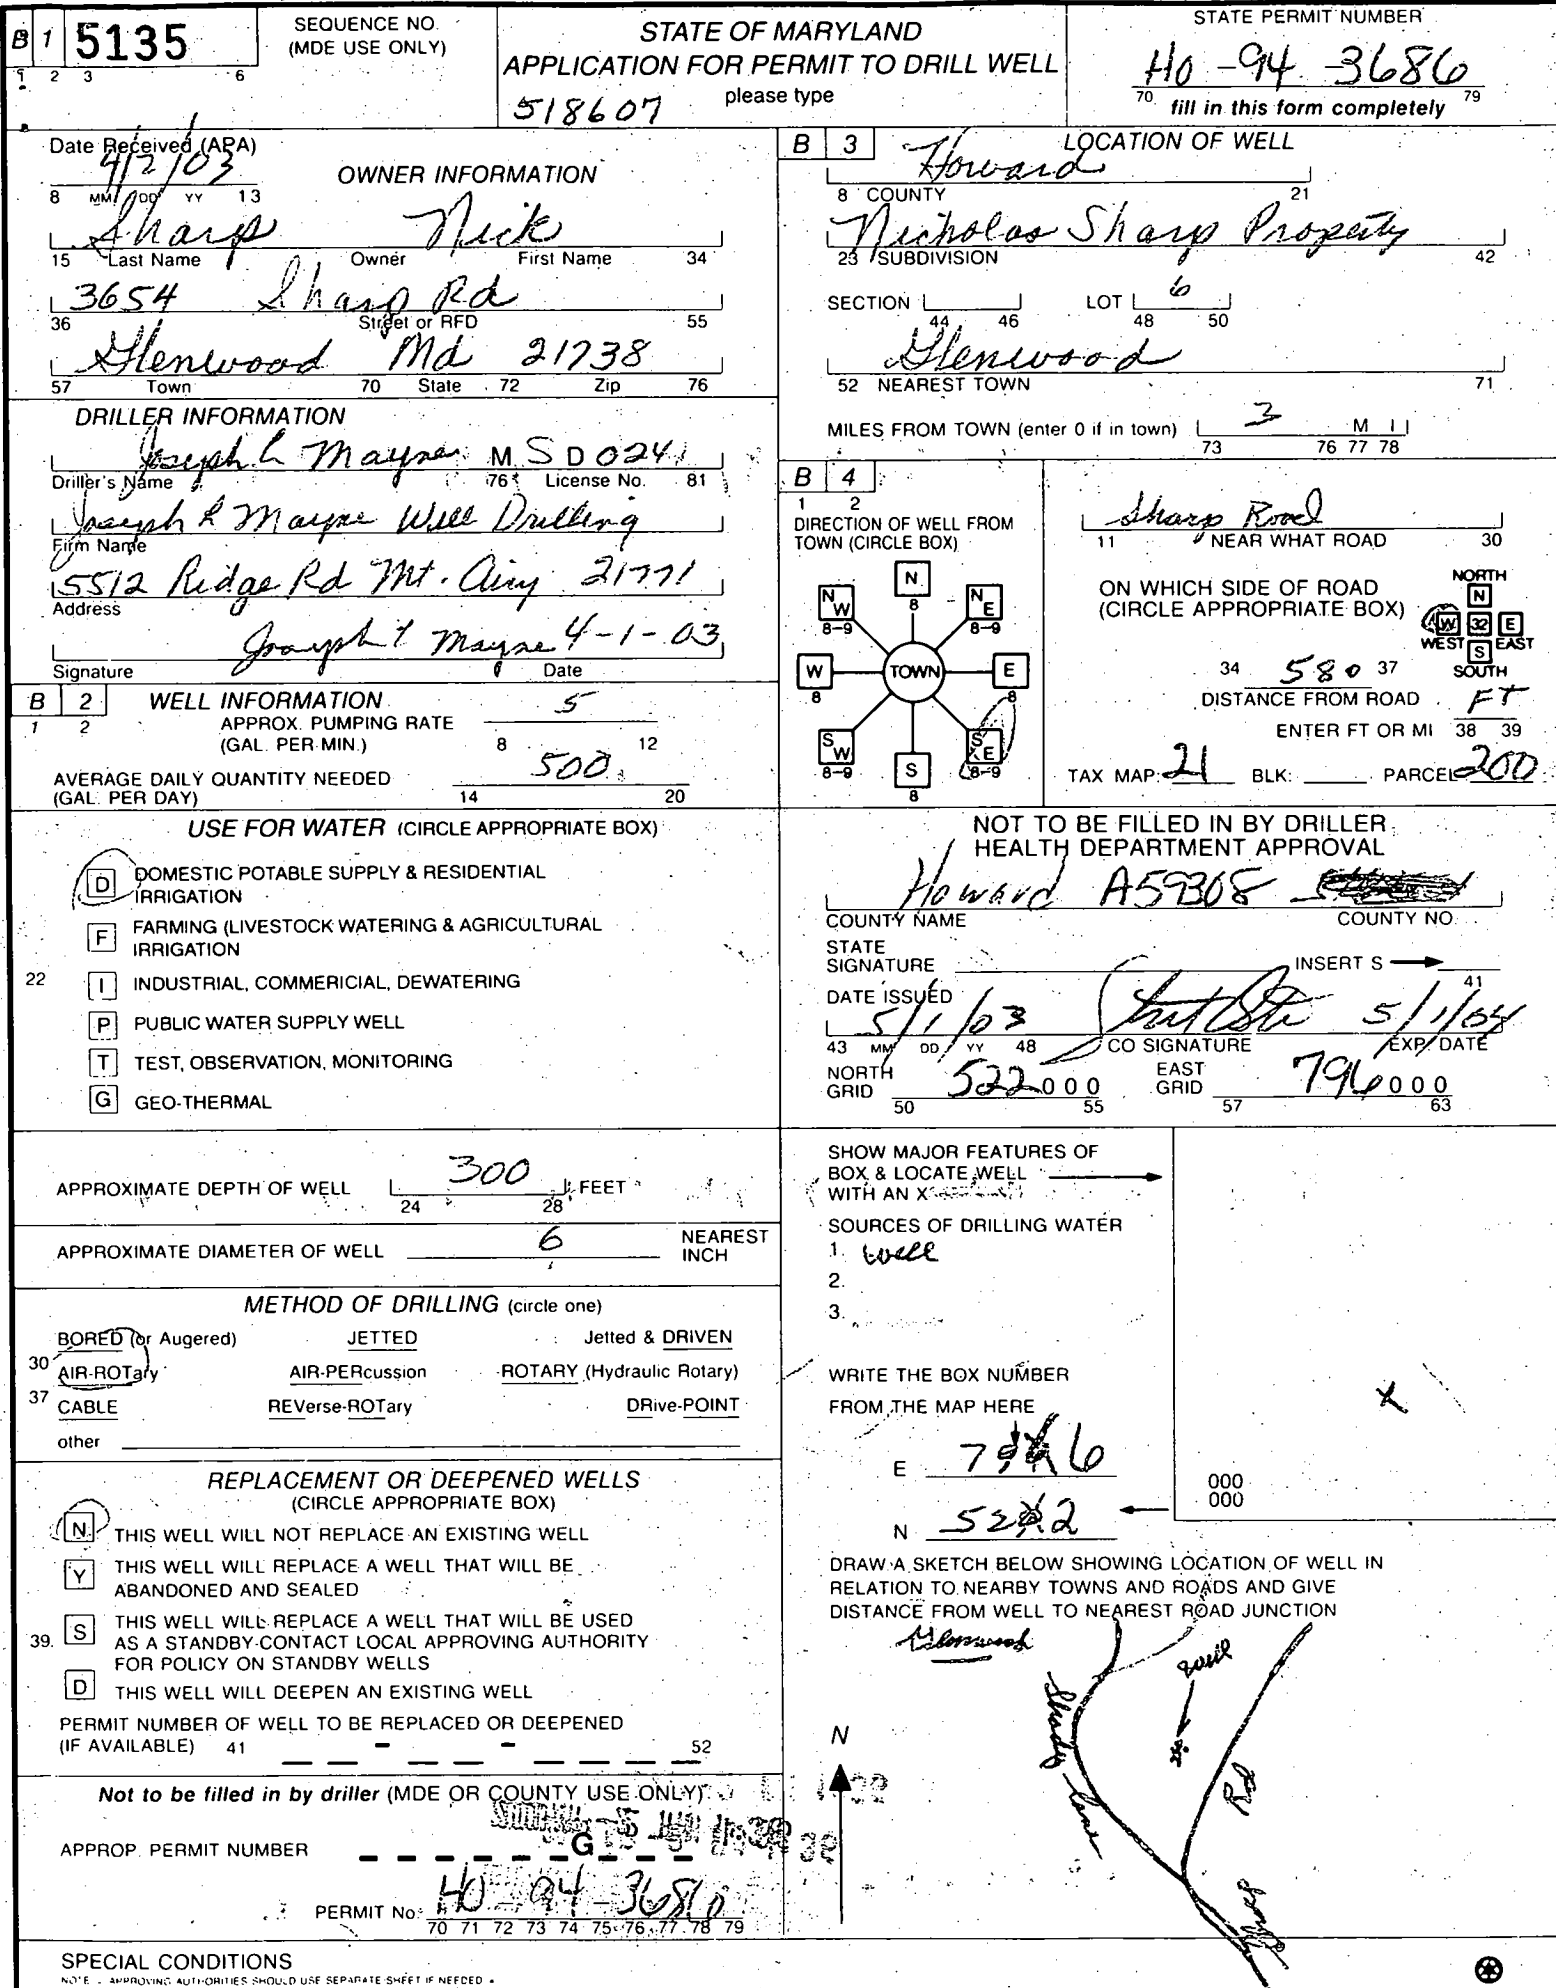 B 1 5135
1 2 3 6
SEQUENCE NO.
(MDE USE ONLY)
STATE OF MARYLAND
APPLICATION FOR PERMIT TO DRILL WELL
please type
518607
STATE PERMIT NUMBER
HO-94-3686
70 79
fill in this form completely
Date Received (APA)
4/2/03
8 MM DD YY 13
OWNER INFORMATION
Sharp Nick
15 Last Name Owner First Name 34
3654 Sharp Rd
36 Street or RFD 55
Glenwood Md 21738
57 Town 70 State 72 Zip 76
DRILLER INFORMATION
Joseph L Mayne MSD024
Driller's Name 76 License No. 81
Joseph L Mayne Well Drilling
Firm Name
5512 Ridge Rd Mt. Airy 21771
Address
Joseph L Mayne 4-1-03
Signature Date
B 2 WELL INFORMATION
1 2
APPROX. PUMPING RATE 5
(GAL. PER MIN.) 8 12
AVERAGE DAILY QUANTITY NEEDED 500
(GAL. PER DAY) 14 20
USE FOR WATER (CIRCLE APPROPRIATE BOX)
D DOMESTIC POTABLE SUPPLY & RESIDENTIAL
IRRIGATION
F FARMING (LIVESTOCK WATERING & AGRICULTURAL
IRRIGATION
22 I INDUSTRIAL, COMMERICIAL, DEWATERING
P PUBLIC WATER SUPPLY WELL
T TEST, OBSERVATION, MONITORING
G GEO-THERMAL
APPROXIMATE DEPTH OF WELL 300 FEET
24 28
APPROXIMATE DIAMETER OF WELL 6 NEAREST
INCH
METHOD OF DRILLING (circle one)
BORED (or Augered) JETTED Jetted & DRIVEN
30 AIR-ROTary AIR-PERcussion ROTARY (Hydraulic Rotary)
37 CABLE REVerse-ROTary DRive-POINT
other
REPLACEMENT OR DEEPENED WELLS
(CIRCLE APPROPRIATE BOX)
N THIS WELL WILL NOT REPLACE AN EXISTING WELL
Y THIS WELL WILL REPLACE A WELL THAT WILL BE
ABANDONED AND SEALED
39. S THIS WELL WILL REPLACE A WELL THAT WILL BE USED
AS A STANDBY-CONTACT LOCAL APPROVING AUTHORITY
FOR POLICY ON STANDBY WELLS
D THIS WELL WILL DEEPEN AN EXISTING WELL
PERMIT NUMBER OF WELL TO BE REPLACED OR DEEPENED
(IF AVAILABLE) 41 - - 52
Not to be filled in by driller (MDE OR COUNTY USE ONLY)
APPROP. PERMIT NUMBER G
PERMIT No. HO-94-3686
70 71 72 73 74 75 76 77 78 79
SPECIAL CONDITIONS
NOTE - APPROVING AUTHORITIES SHOULD USE SEPARATE SHEET IF NEEDED
B 3 LOCATION OF WELL
Howard
8 COUNTY 21
Nicholas Sharp Property
23 SUBDIVISION 42
SECTION LOT 6
44 46 48 50
Glenwood
52 NEAREST TOWN 71
MILES FROM TOWN (enter 0 if in town) 3 M I
73 76 77 78
B 4
1 2
DIRECTION OF WELL FROM
TOWN (CIRCLE BOX)
N
8
NW
8-9
NE
8-9
W
8
TOWN
E
8
SW
8-9
S
8
SE
8-9
Sharp Road
11 NEAR WHAT ROAD 30
ON WHICH SIDE OF ROAD
(CIRCLE APPROPRIATE BOX)
NORTH
N
W 32 E
WEST EAST
S
SOUTH
34 580 37
DISTANCE FROM ROAD FT
ENTER FT OR MI 38 39
TAX MAP: 21 BLK: PARCEL 200
NOT TO BE FILLED IN BY DRILLER
HEALTH DEPARTMENT APPROVAL
Howard A59308
COUNTY NAME COUNTY NO.
STATE
SIGNATURE INSERT S
41
DATE ISSUED
5/1/03 5/1/04
43 MM DD YY 48 CO SIGNATURE EXP. DATE
NORTH
GRID 522000
50 55
EAST
GRID 796000
57 63
SHOW MAJOR FEATURES OF
BOX & LOCATE WELL
WITH AN X
SOURCES OF DRILLING WATER
1. well
2.
3.
WRITE THE BOX NUMBER
FROM THE MAP HERE
E 796
N 522
X
000
000
DRAW A SKETCH BELOW SHOWING LOCATION OF WELL IN
RELATION TO NEARBY TOWNS AND ROADS AND GIVE
DISTANCE FROM WELL TO NEAREST ROAD JUNCTION
Glenwood
well
Shady Lane
Rd
Sharp
N